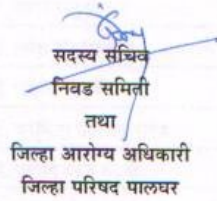 सदस्य सचिव
निवड समिती
तथा
जिल्हा आरोग्य अधिकारी
जिल्हा परिषद पालघर